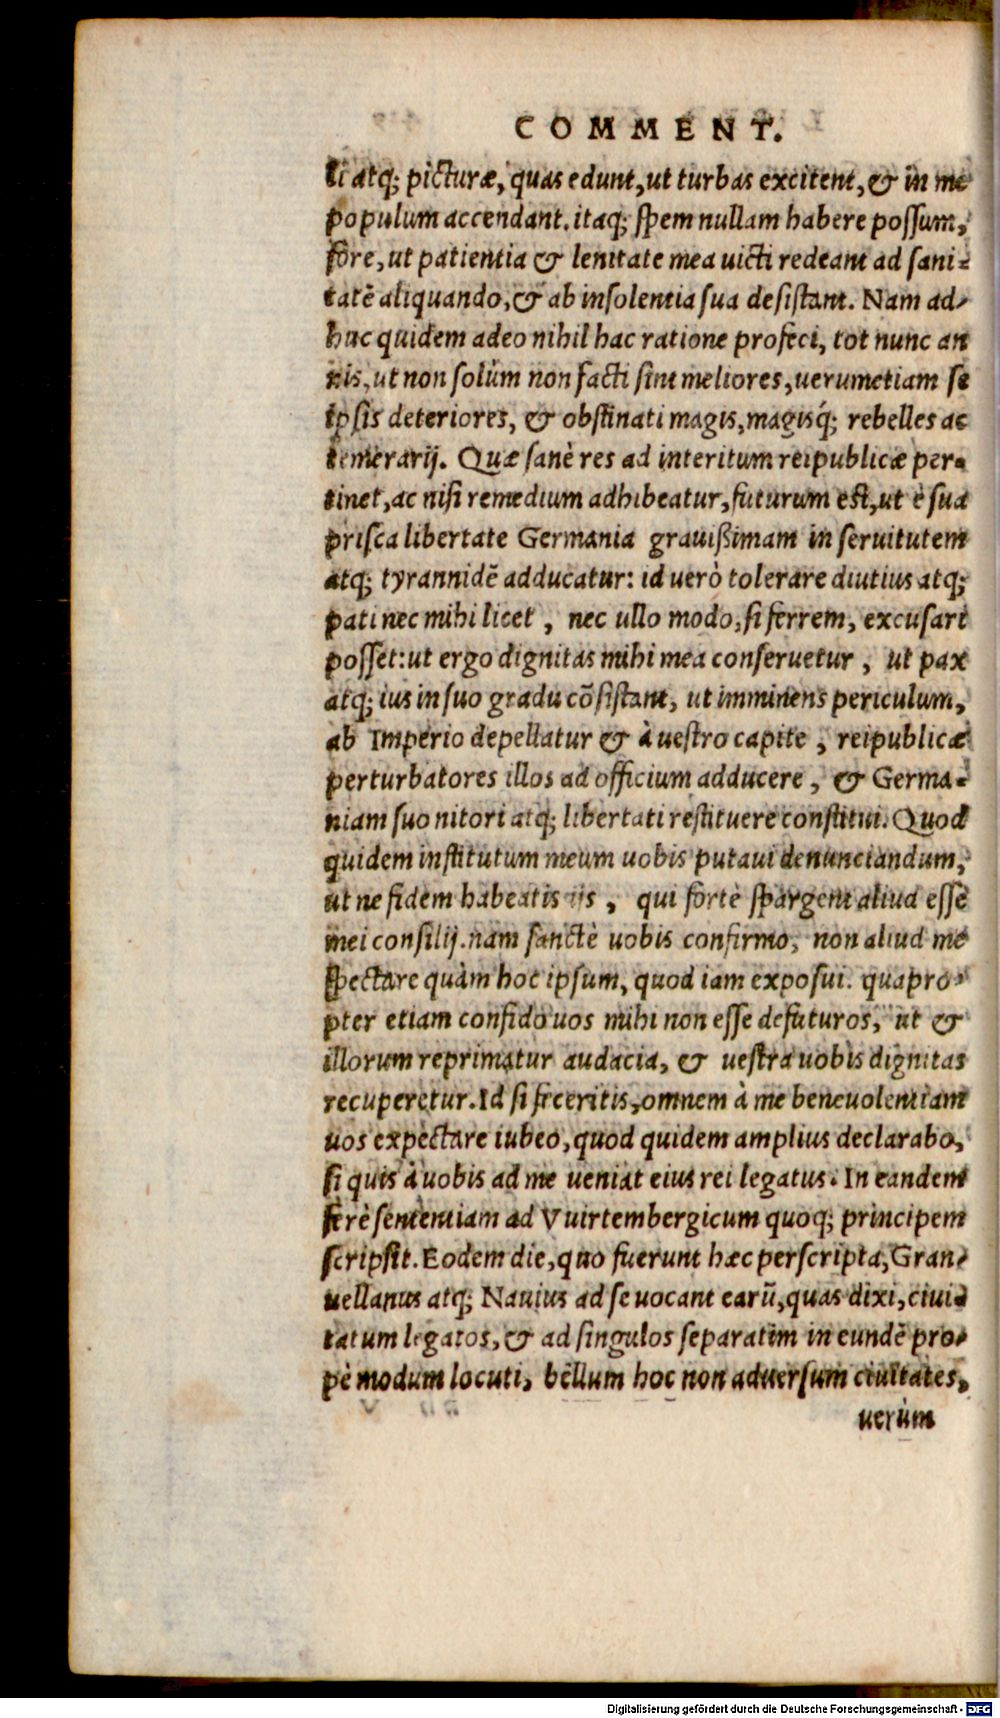 COMMENT.
li atq; picturæ, quas edunt, ut turbas excitent, & in me
populum accendant. itaq; spem nullam habere possum,
fore, ut patientia & lenitate mea uicti redeant ad sani-
tatē aliquando, & ab insolentia sua desistant. Nam ad-
huc quidem adeo nihil hac ratione profeci, tot nunc an
nis, ut non solùm non facti sint meliores, uerumetiam se
ipsis deteriores, & obstinati magis, magisq́; rebelles ac
temerarij. Quæ sanè res ad interitum reipublicæ per-
tinet, ac nisi remedium adhibeatur, futurum est, ut è sua
prisca libertate Germania grauißimam in seruitutem
atq; tyrannidē adducatur: id uerò tolerare diutius atq;
pati nec mihi licet, nec ullo modo, si ferrem, excusari
posset: ut ergo dignitas mihi mea conseruetur, ut pax
atq; ius in suo gradu cōsistant, ut imminens periculum,
ab Imperio depellatur & à uestro capite, reipublicæ
perturbatores illos ad officium adducere, & Germa-
niam suo nitori atq; libertati restituere constitui. Quod
quidem institutum meum uobis putaui denunciandum,
ut ne fidem habeatis ijs, qui fortè spargent aliud esse
mei consilij. nam sanctè uobis confirmo, non aliud me
spectare quàm hoc ipsum, quod iam exposui. quapro-
pter etiam confido uos mihi non esse defuturos, ut &
illorum reprimatur audacia, & uestra uobis dignitas
recuperetur. Id si feceritis, omnem à me beneuolentiam
uos expectare iubeo, quod quidem amplius declarabo,
si quis à uobis ad me ueniat eius rei legatus. In eandem
ferè sententiam ad Vuirtembergicum quoq; principem
scripsit. Eodem die, quo fuerunt hæc perscripta, Gran-
uellanus atq; Nauius ad se uocant earū, quas dixi, ciui-
tatum legatos, & ad singulos separatim in eundē pro-
pè modum locuti, bellum hoc non aduersum ciuitates,
uerùm
Digitalisierung gefördert durch die Deutsche Forschungsgemeinschaft - DFG